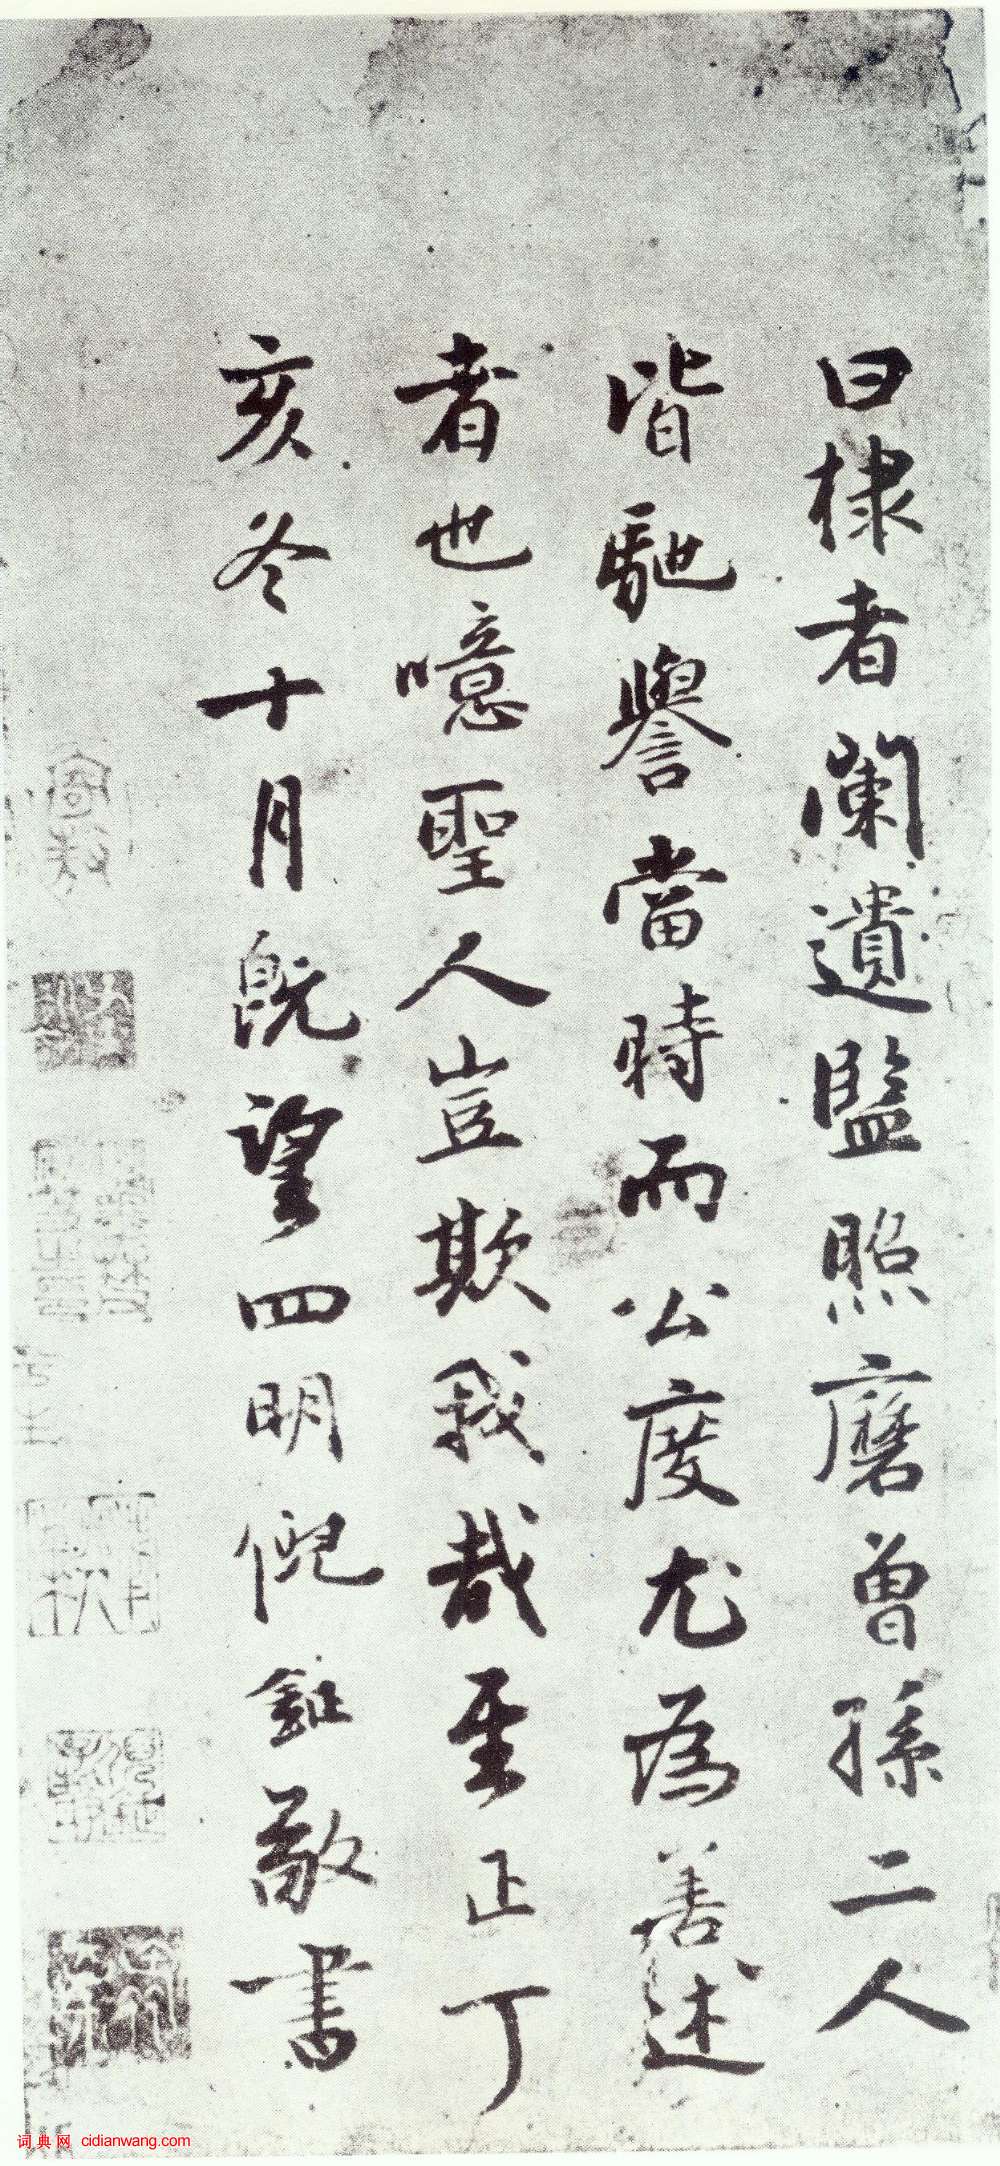 曰棣者闌遺監照磨曾孫二人
皆馳譽當時而公度尤為善述
者也噫聖人豈欺我哉至正丁
亥冬十月既望四明倪 敬書
词典网 cidianwang.com